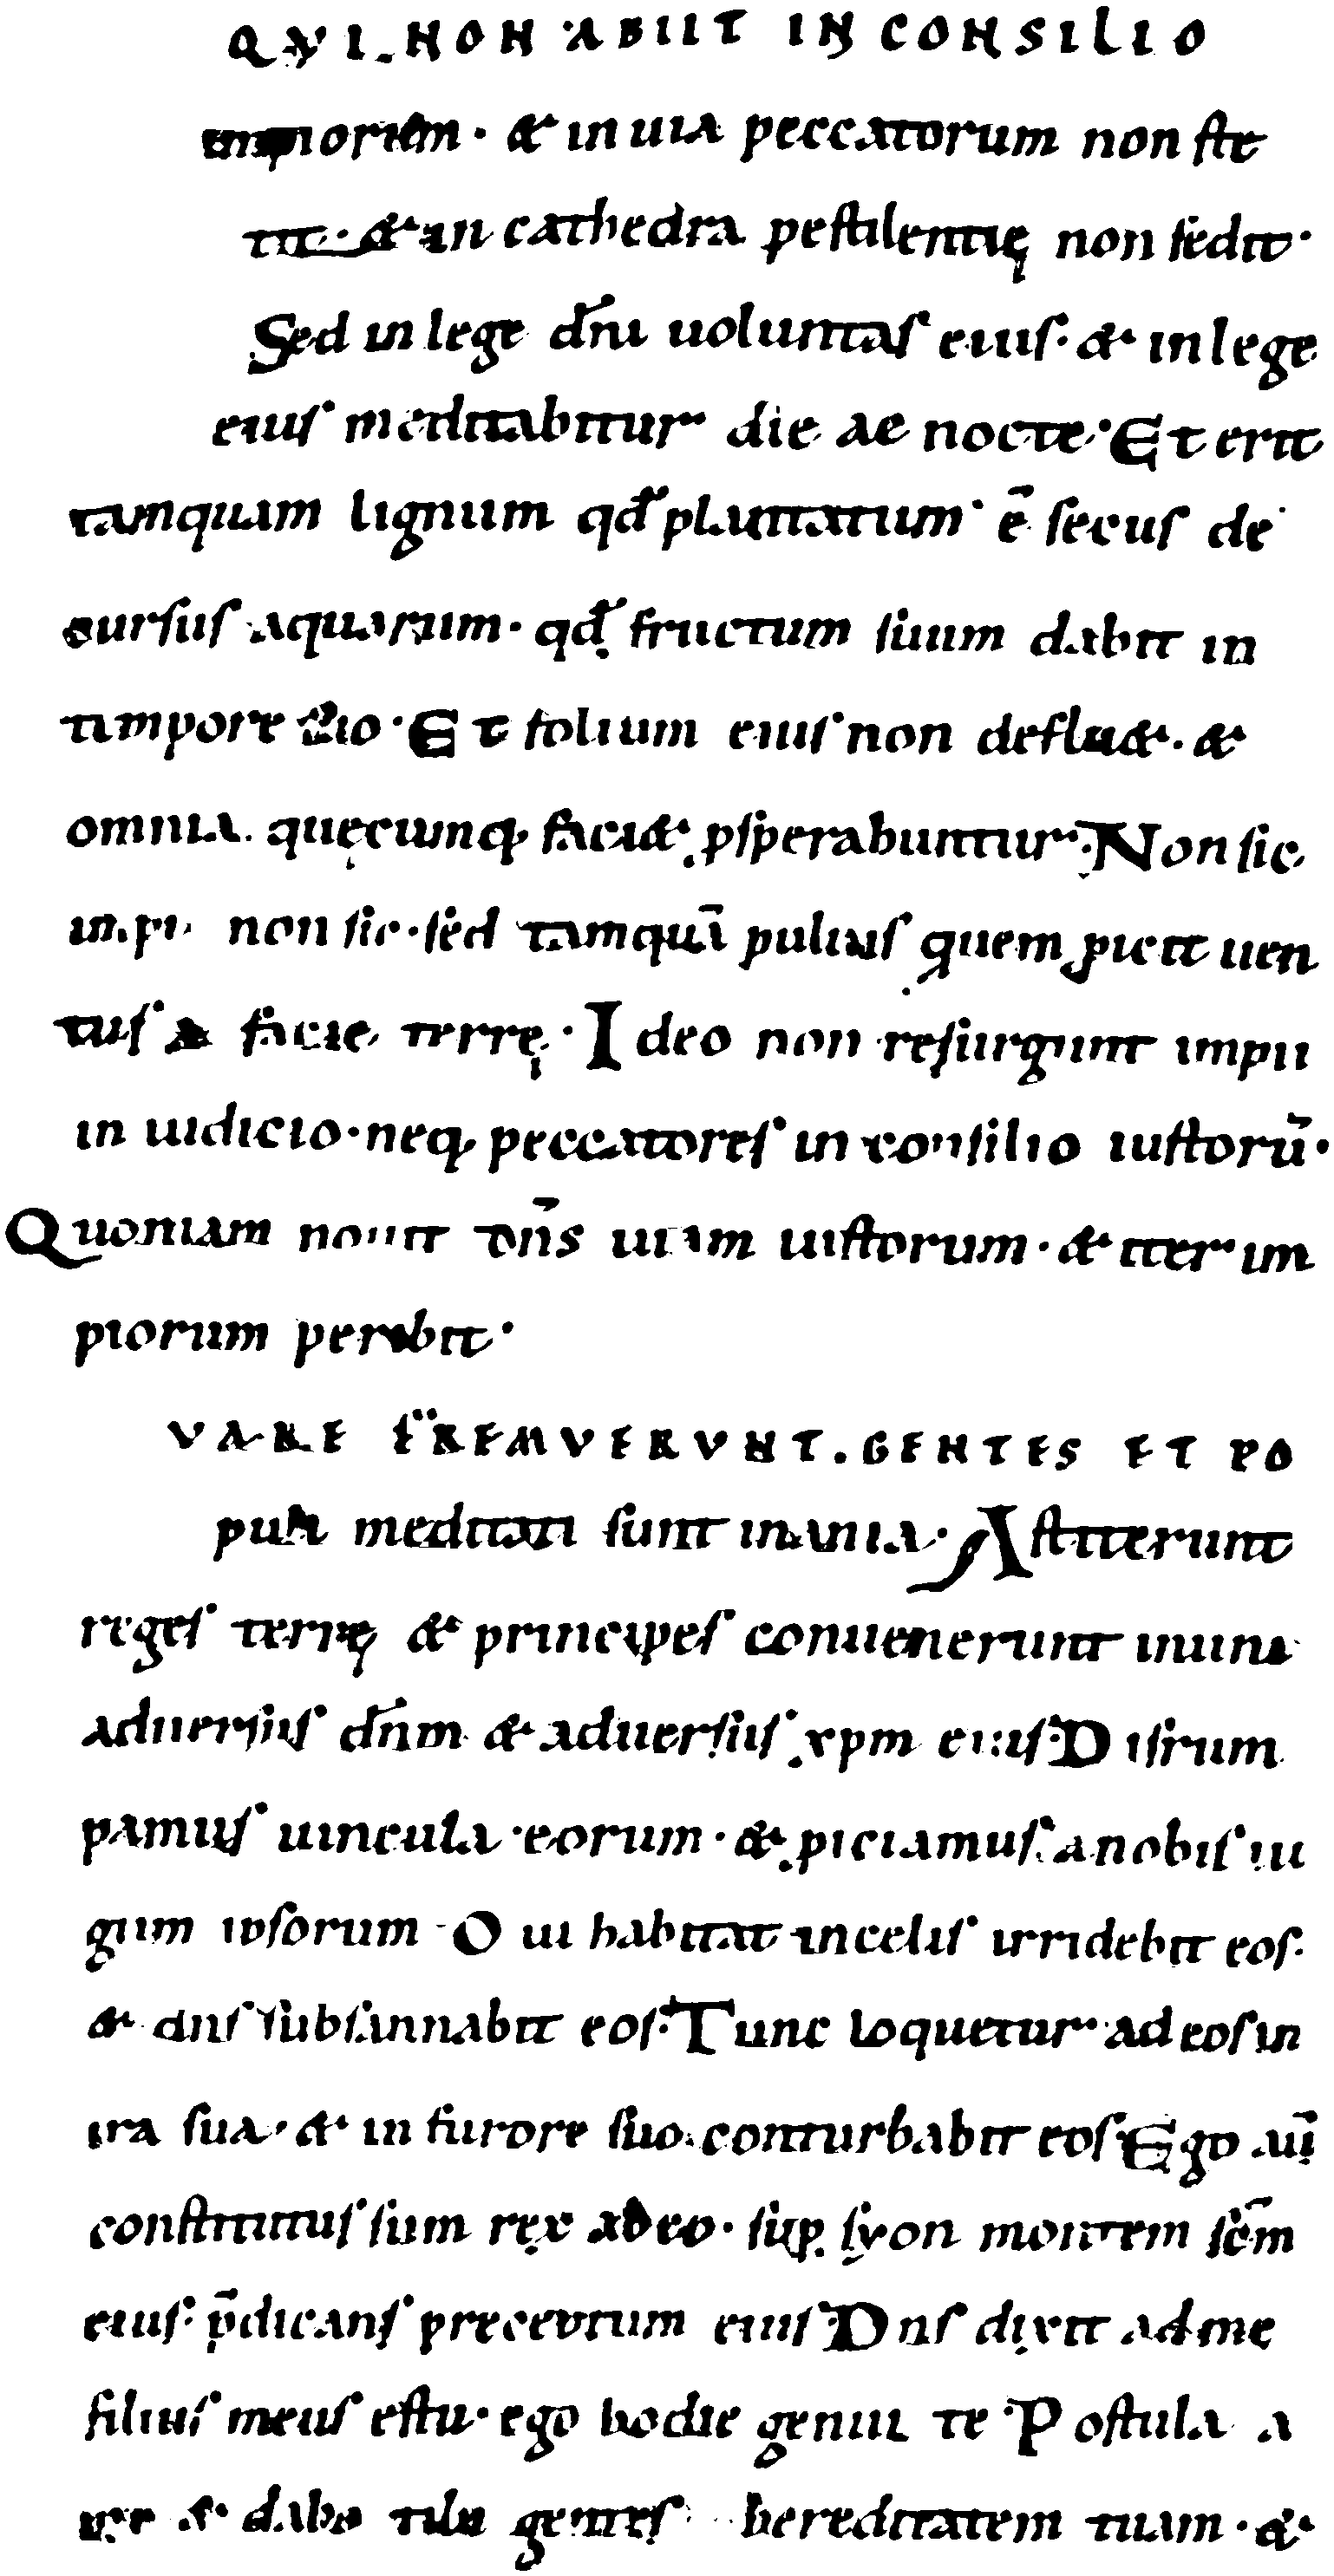 QVI NON ABIIT IN CONSILIO
impiorum · & in uia peccatorum non ste
tit · & in cathedra pestilentię non sedit ·
Sed in lege dn̄i uoluntas eius · & in lege
eius meditabitur die ac nocte · Et erit
tamquam lignum qđ plantatum ē secus de
cursus aquarum · qđ fructum suum dabit in
tempore suo · Et folium eius non defluet · &
omnia quęcumq; faciet ꝓsperabuntur · Non sic
impii non sic · sed tamquā puluis quem ꝓicit uen
tus a facie terrę · Ideo non resurgunt impii
in iudicio · neq; peccatores in consilio iustorū ·
Quoniam nouit dn̄s uiam iustorum · & iter im
piorum peribit ·
VARE FREMVERVNT · GENTES ET PO
puli meditati sunt inania · Astiterunt
reges terrę & principes conuenerunt in unu
aduersus dn̄m & aduersus xpm eius · Disrum
pamus uincula eorum · & ꝓiciamus a nobis iu
gum ipsorum · Qui habitat in celis irridebit eos ·
& dns subsannabit eos · Tunc loquetur ad eos in
ira sua · & in furore suo conturbabit eos · Ego aūt
constitutus sum rex ab eo · sup̱ syon montem sc̄m
eius · p̄dicans preceptum eius · Dns dixit ad me
filius meus es tu · ego hodie genui te · Postula a
me & dabo tibi gentes hereditatem tuam · &